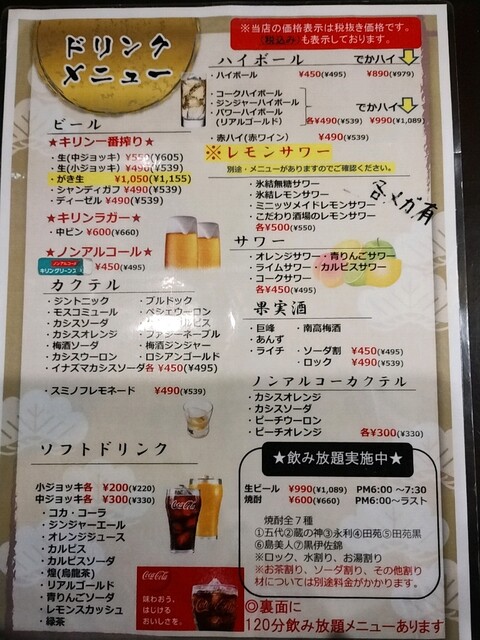 ドリンク
メニュー
※当店の価格表示は税抜き価格です。
(税込み)も表示しております。
ハイボール でかハイ
・ハイボール ¥450(¥495) ¥890(¥979)
・コークハイボール
・ジンジャーハイボール
・パワーハイボール
(リアルゴールド) 各¥490(¥539) でかハイ ¥990(¥1,089)
・赤ハイ(赤ワイン) ¥490(¥539)
※レモンサワー
別途・メニューがありますのでご確認ください。
・氷結無糖サワー
・氷結レモンサワー
・ミニッツメイドレモンサワー
・こだわり酒場のレモンサワー
各¥500(¥550)
各メガ有
サワー
・オレンジサワー・青りんごサワー
・ライムサワー・カルピスサワー
・コークサワー
各¥450(¥495)
果実酒
・巨峰 ・南高梅酒
・あんず
・ライチ ・ソーダ割 ¥450(¥495)
・ロック ¥490(¥539)
ノンアルコーカクテル
・カシスオレンジ
・カシスソーダ
・ピーチウーロン
・ピーチオレンジ 各¥300(¥330)
★飲み放題実施中★
生ビール ¥990(¥1,089) PM6:00 ~7:30
焼酎 ¥600(¥660) PM6:00~ラスト
焼酎全7種
①五代②蔵の神③永利④田苑⑤田苑黒
⑥島美人⑦黒伊佐錦
※ロック、水割り、お湯割り
※お茶割り、ソーダ割り、その他割り
材については別途料金がかかります。
◎裏面に
120分飲み放題メニューあります
ビール
★キリン一番搾り★
・生(中ジョッキ) ¥550(¥605)
・生(小ジョッキ) ¥490(¥539)
・がき生 ¥1,050(¥1,155)
・シャンディガフ ¥490(¥539)
・ディーゼル ¥490(¥539)
★キリンラガー★
・中ビン ¥600(¥660)
★ノンアルコール★
¥450(¥495)
カクテル
・ジントニック ・ブルドック
・モスコミュール ・ペシェウーロン
・カシスソーダ
・カシスオレンジ ・ファジーネーブル
・梅酒ソーダ ・梅酒ジンジャー
・カシスウーロン ・ロシアンゴールド
・イナズマカシスソーダ 各 ¥450(¥495)
・スミノフレモネード ¥490(¥539)
ソフトドリンク
小ジョッキ各 ¥200(¥220)
中ジョッキ各 ¥300(¥330)
・コカ・コーラ
・ジンジャーエール
・オレンジジュース
・カルピス
・カルピスソーダ
・煌(烏龍茶)
・リアルゴールド
・青りんごソーダ
・レモンスカッシュ
・緑茶
Coca-Cola
味わおう。
はじける
おいしさを。